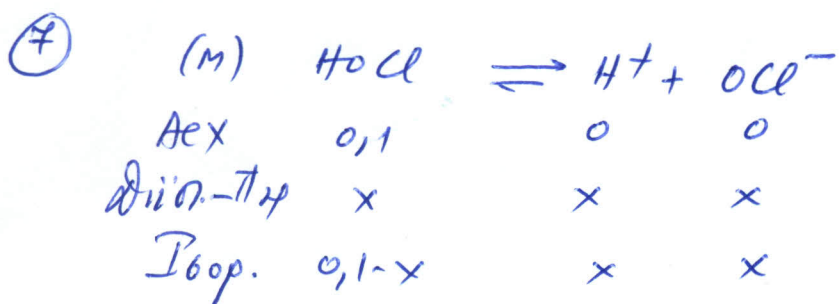 ⑦ (M) HOCl ⇌ H⁺ + OCl⁻
Αρχ 0,1 0 0
x x x
Ισορ. 0,1-x x x